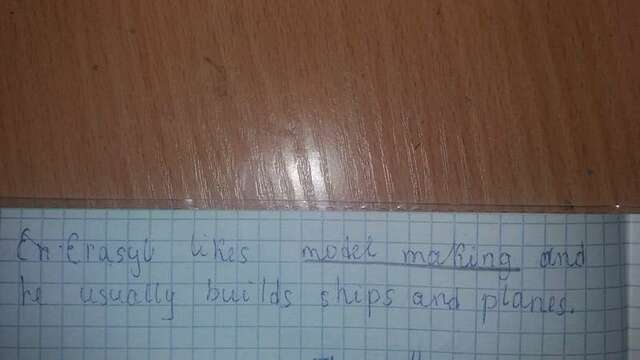 En: Erasyl likes model making and
he usually builds ships and planes.